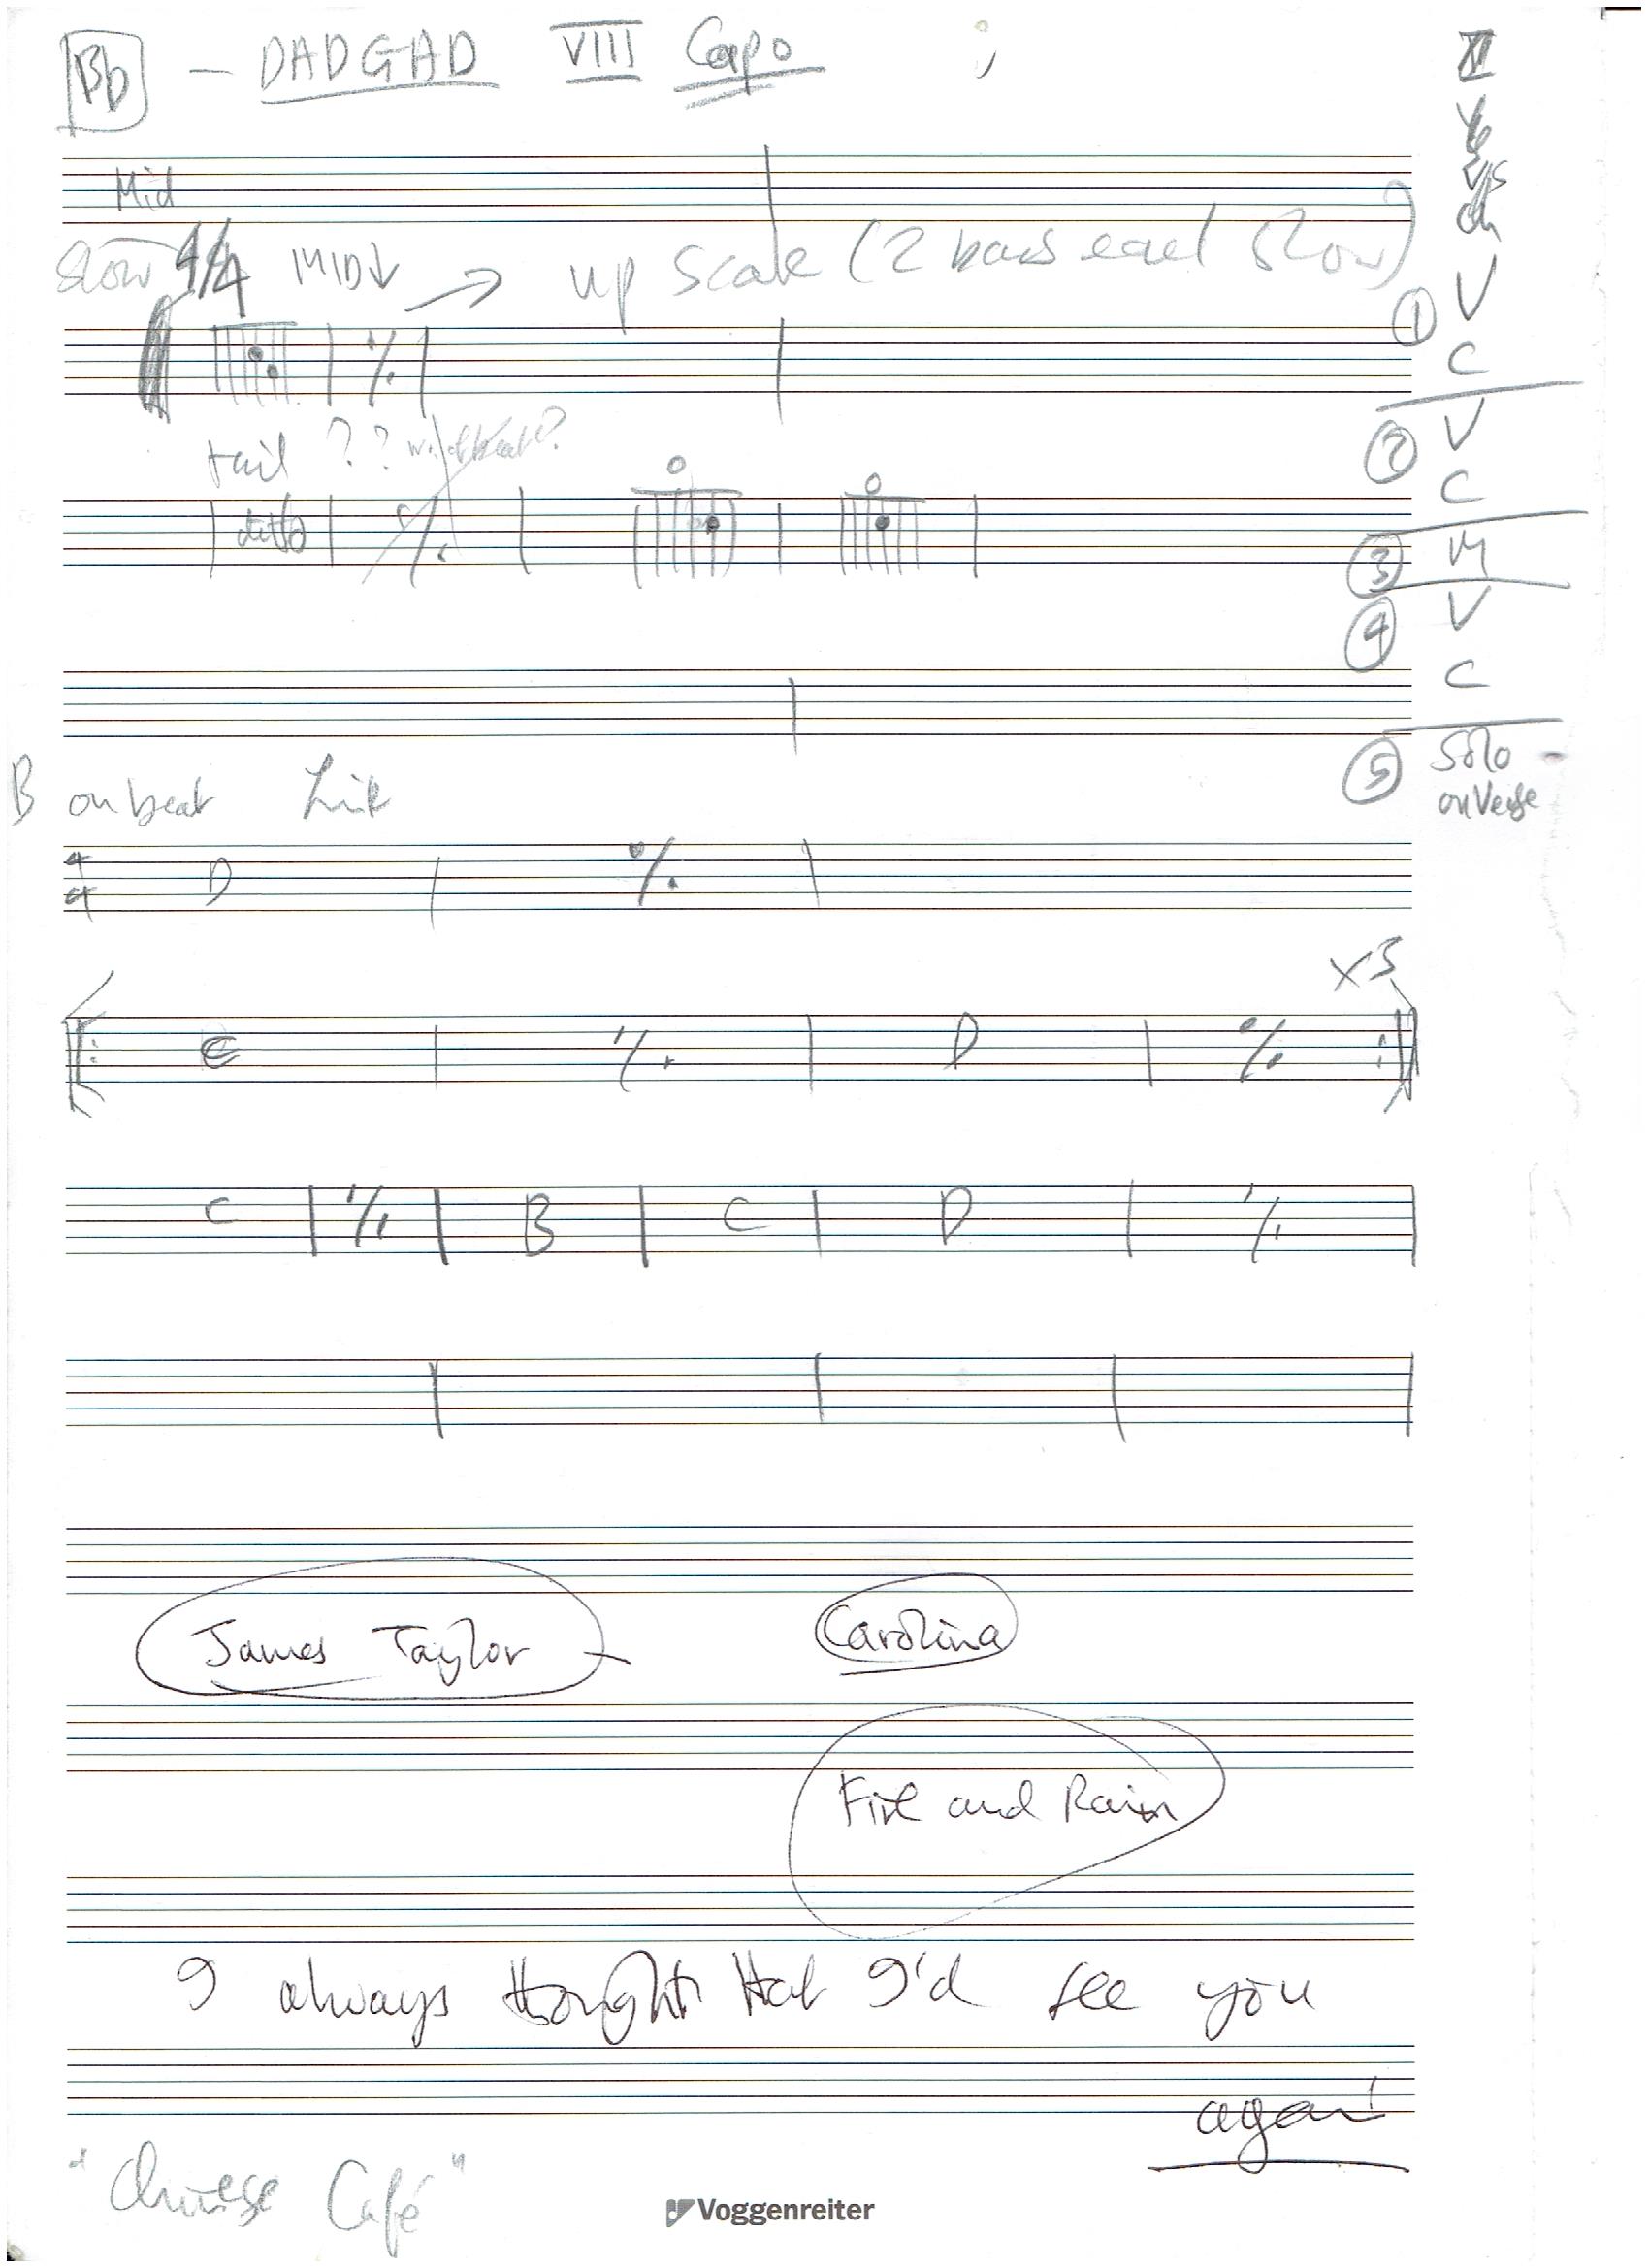 Bb - DADGAD VIII Capo
Mid
Slow 4/4 MID↓ → up Scale (2 bars each Slow)
tail ??
ditto
B on beat Link
4/4 D
C D x3
C B C D
V
① C
V
② C
③ M
④ V
C
⑤ Solo
on Verse
James Taylor Carolina
Fire and Rain
I always thought that I'd see you
again
"Chinese Café"
Voggenreiter